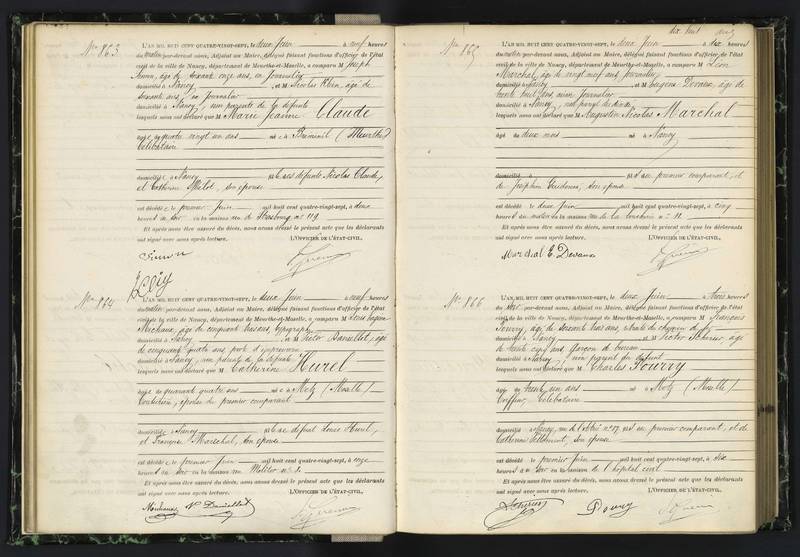 No 863
L'AN MIL HUIT CENT QUATRE-VINGT-SEPT, le deux Juin à neuf heures
du matin par-devant nous, Adjoint au Maire, délégué faisant fonctions d'officier de l'état
civil de la ville de Nancy, département de Meurthe-et-Moselle, a comparu M Joseph
Simon, âgé de soixante onze ans, en journalier
domicilié à Nancy et M Nicolas Klein, âgé de
soixante ans, en journalier
domicilié à Nancy, non parents de la défunte
lesquels nous ont déclaré que M Marie Jeanne Claude
âgée de quatre vingt un ans née à Brémenil (Meurthe)
Célibataire
domiciliée à Nancy fille des défunts Nicolas Claude,
et Catherine, son épouse
est décédée le premier Juin mil huit cent quatre-vingt-sept, à deux
heures du soir en la maison rue de Strasbourg no 119
Et après nous être assuré du décès, nous avons dressé le présent acte que les déclarants
ont signé avec nous après lecture. L'OFFICIER DE L'ÉTAT-CIVIL,
Simon
No 864
L'AN MIL HUIT CENT QUATRE-VINGT-SEPT, le deux Juin à neuf heures
du matin par-devant nous, Adjoint au Maire, délégué faisant fonctions d'officier de l'état
civil de la ville de Nancy, département de Meurthe-et-Moselle, a comparu M Louis Eugène
Michaux, âgé de cinquante trois ans, typographe
domicilié à Nancy et M Victor Daniellot, âgé
de cinquante quatre ans, prote d'imprimerie
domicilié à Nancy, non parents de la défunte
lesquels nous ont déclaré que M Catherine Hurel
âgée de quarante quatre ans née à Metz (Moselle)
Couturière, épouse du premier comparant
domiciliée à Nancy fille du défunt Louis Hurel,
et Françoise Marechal, son épouse
est décédée le premier Juin mil huit cent quatre-vingt-sept, à onze
heures du soir en la maison rue
Et après nous être assuré du décès, nous avons dressé le présent acte que les déclarants
ont signé avec nous après lecture. L'OFFICIER DE L'ÉTAT-CIVIL,
Michaux Vr Daniellot
dix huit
No 865
L'AN MIL HUIT CENT QUATRE-VINGT-SEPT, le deux Juin à dix heures
du matin par-devant nous, Adjoint au Maire, délégué faisant fonctions d'officier de l'état
civil de la ville de Nancy, département de Meurthe-et-Moselle, a comparu M Léon
Marchal, âgé de vingt neuf ans, journalier
domicilié à Nancy et M Eugène Devaux, âgé de
trente huit ans, aussi journalier
domicilié à Nancy, non parent du défunt
lesquels nous ont déclaré que M Augustin Nicolas Marchal
âgé de deux mois né à Nancy
domicilié à fils du premier comparant, et
de Joséphine, son épouse
est décédé le deux Juin mil huit cent quatre-vingt-sept, à cinq
heures du matin en la maison rue de la boucherie no 11
Et après nous être assuré du décès, nous avons dressé le présent acte que les déclarants
ont signé avec nous après lecture. L'OFFICIER DE L'ÉTAT-CIVIL,
Marchal E. Devaux
No 866
L'AN MIL HUIT CENT QUATRE-VINGT-SEPT, le deux Juin à trois heures
du soir par-devant nous, Adjoint au Maire, délégué faisant fonctions d'officier de l'état
civil de la ville de Nancy, département de Meurthe-et-Moselle, a comparu M François
Pourry, âgé de soixante trois ans, retraité du chemin de fer
domicilié à Nancy et M Victor Scherer, âgé
de trente cinq ans, garçon de bureau
domicilié à Nancy, non parent du défunt
lesquels nous ont déclaré que M Charles Pourry
âgé de trente un ans né à Metz (Moselle)
Coiffeur, Célibataire
domicilié à Nancy, fils du premier comparant, et de
Catherine, son épouse
est décédé le premier Juin mil huit cent quatre-vingt-sept, à dix
heures du soir en la maison de l'hôpital civil
Et après nous être assuré du décès, nous avons dressé le présent acte que les déclarants
ont signé avec nous après lecture. L'OFFICIER DE L'ÉTAT-CIVIL,
Scherer Pourry